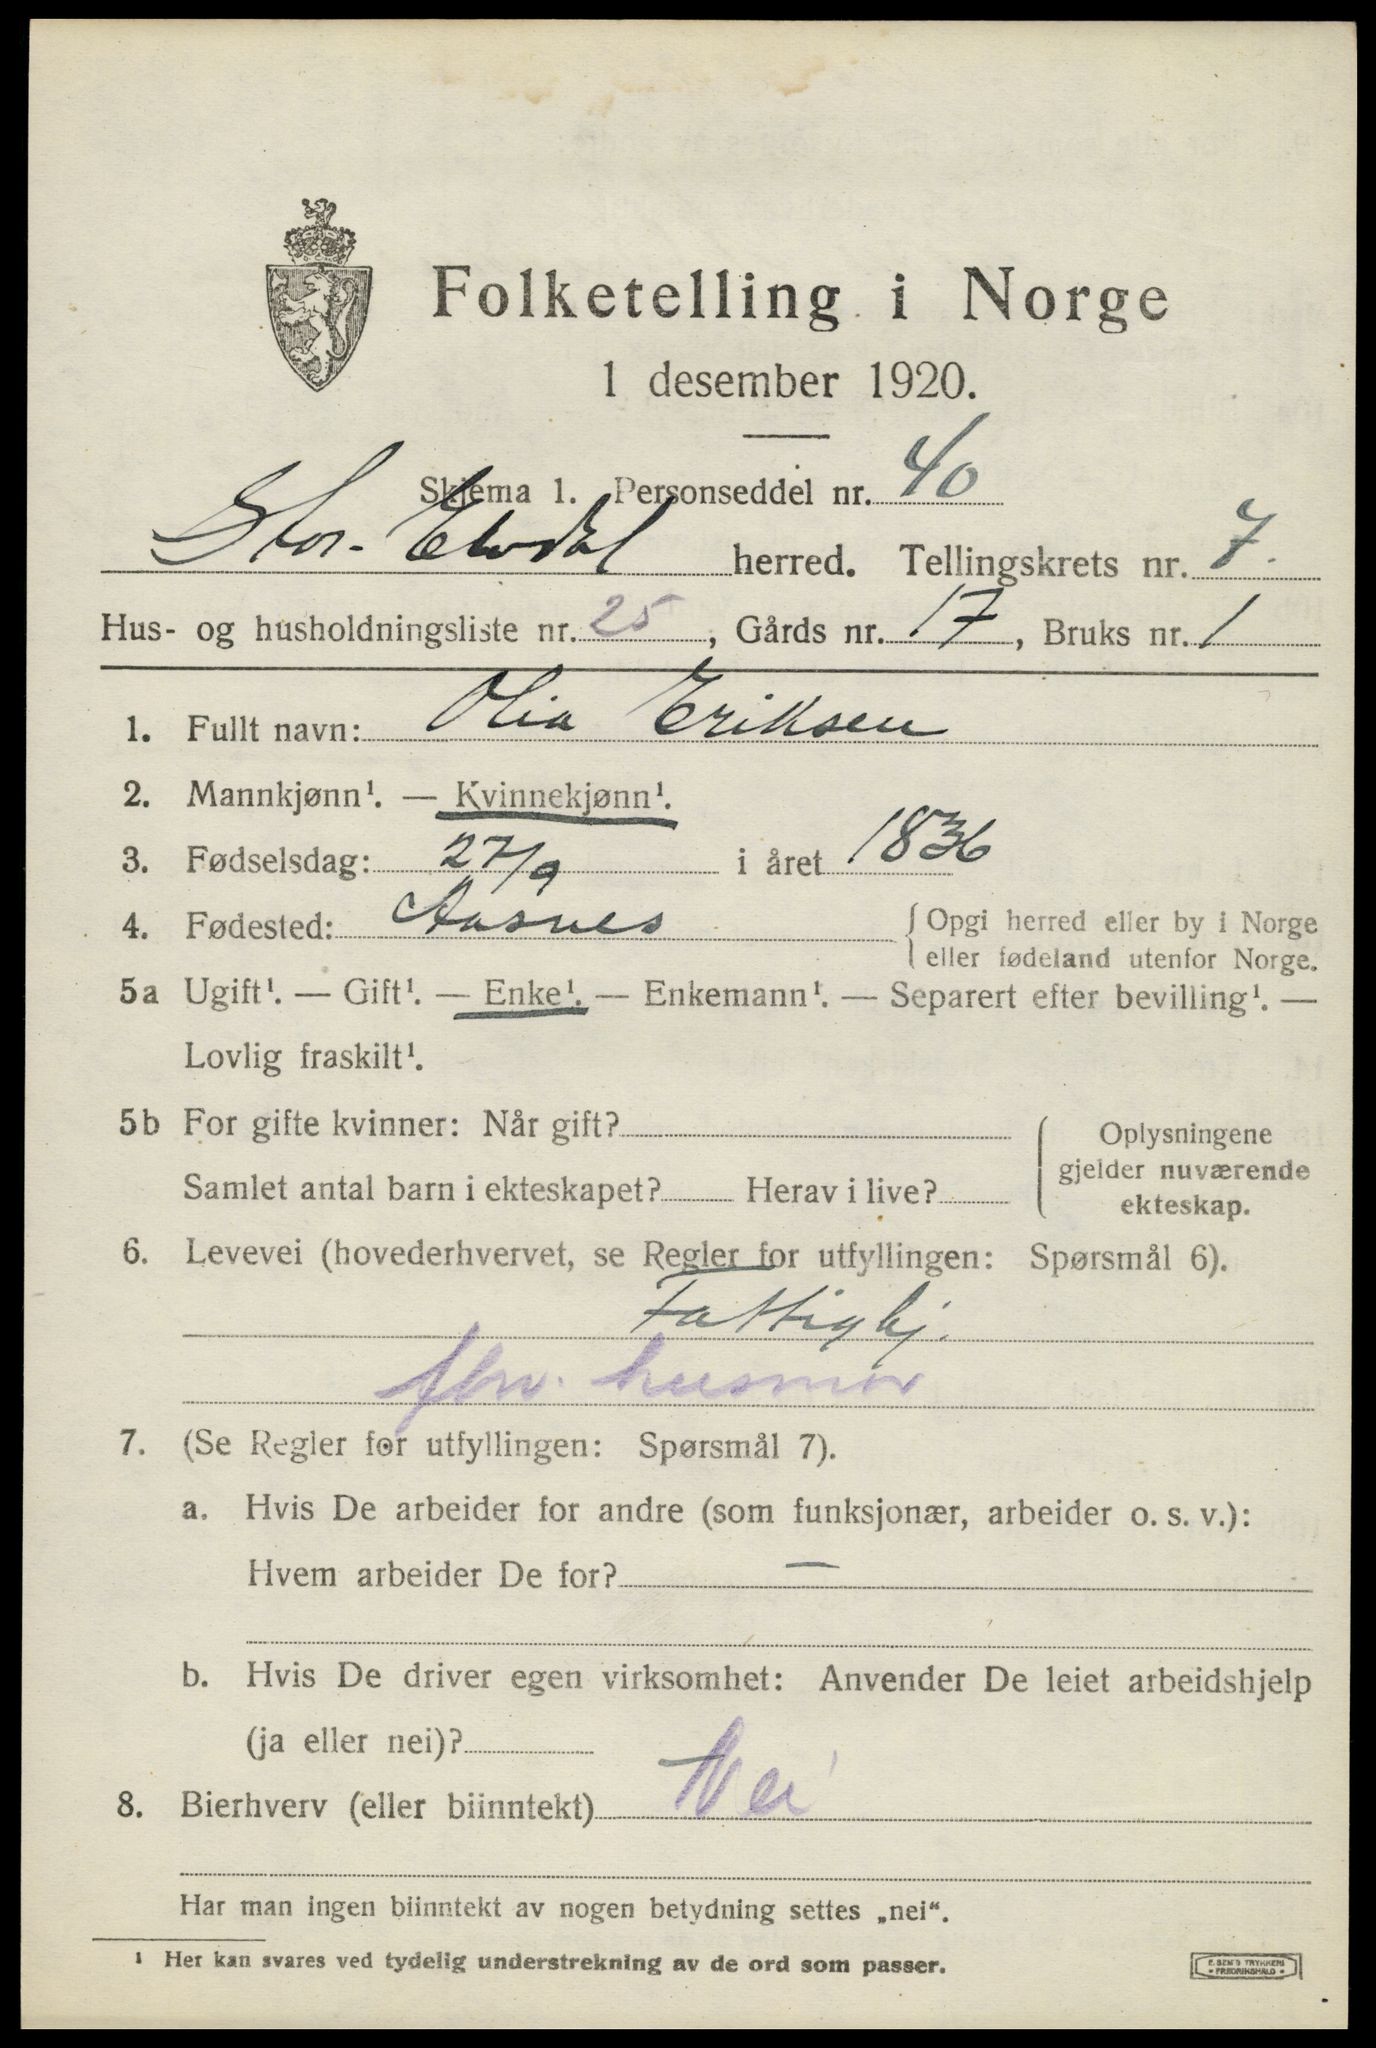 Folketelling i Norge
1 desember 1920.
Skjema 1. Personseddel nr. 40
Stor-Elvdal herred. Tellingskrets nr. 7.
Hus- og husholdningsliste nr. 25, Gårds nr. 17, Bruks nr. 1
1. Fullt navn: Olia Eriksen
2. Mannkjønn¹. — Kvinnekjønn¹.
3. Fødselsdag: 27/9 i året 1836
4. Fødested: Aasnes { Opgi herred eller by i Norge
eller fødeland utenfor Norge.
5a Ugift¹. — Gift¹. — Enke¹. — Enkemann¹. — Separert efter bevilling¹. —
Lovlig fraskilt¹.
5b For gifte kvinner: Når gift?
Samlet antal barn i ekteskapet? Herav i live?
Oplysningene
gjelder nuværende
ekteskap.
6. Levevei (hovederhvervet, se Regler for utfyllingen: Spørsmål 6).
Fattighj.
husmor
7. (Se Regler for utfyllingen: Spørsmål 7).
a. Hvis De arbeider for andre (som funksjonær, arbeider o. s. v.):
Hvem arbeider De for? —
b. Hvis De driver egen virksomhet: Anvender De leiet arbeidshjelp
(ja eller nei)?
8. Bierhverv (eller biinntekt) Nei
Har man ingen biinntekt av nogen betydning settes „nei".
¹ Her kan svares ved tydelig understrekning av de ord som passer.
E. SEM'S TRYKKERI
• FREDRIKSHALD •